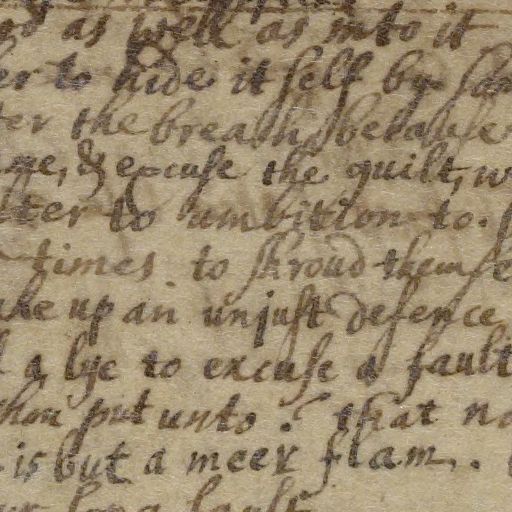 as well as into it
to hide it self by
the breath, because
& excuse the guilt,
to umbition to
times to shroud themse
up an unjust defence
a lye to excuse a fault
thou put unto? that
is but a meer flam.